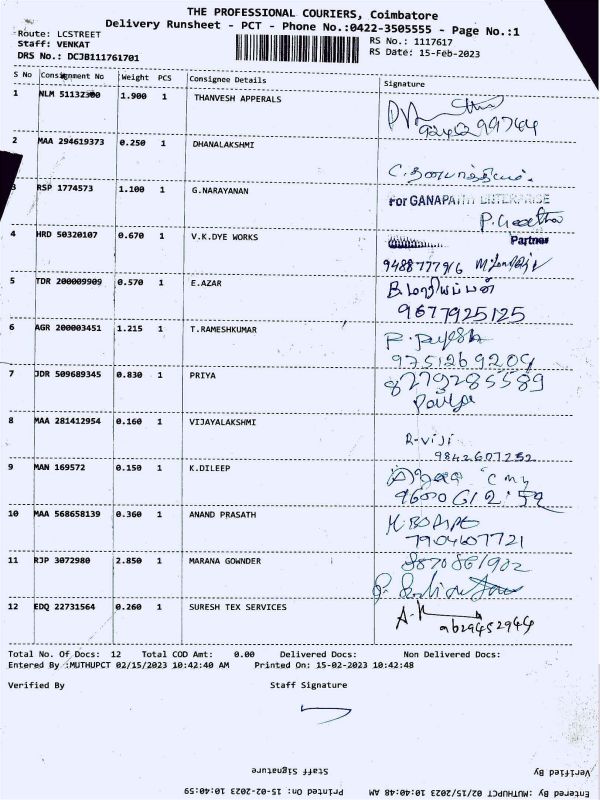 THE PROFESSIONAL COURIERS, Coimbatore
Delivery Runsheet - PCT - Phone No.:0422-3505555 - Page No.:1
Route: LCSTREET
Staff: VENKAT
DRS No.: DCJB111761701
RS No.: 1117617
RS Date: 15-Feb-2023
S No Consignment No Weight PCS Consignee Details Signature
1 NLM 1.900 1 THANVESH APPERALS
2 MAA 294619373 0.250 1 DHANALAKSHMI
3 RSP 1774573 1.100 1 G.NARAYANAN
For GANAPATHI ENTERPRISE
Partner
4 HRD 50320107 0.670 1 V.K.DYE WORKS
5 TDR 200009909 0.570 1 E.AZAR
9677925125
6 AGR 200003451 1.215 1 T.RAMESHKUMAR
9751269209
7 JDR 509689345 0.830 1 PRIYA
8279285589
8 MAA 281412954 0.160 1 VIJAYALAKSHMI
R-viji
9842607252
9 MAN 169572 0.150 1 K.DILEEP
10 MAA 568658139 0.360 1 ANAND PRASATH
7904607721
11 RJP 3072980 2.850 1 MARANA GOWNDER
8870861902
12 EDQ 22731564 0.260 1 SURESH TEX SERVICES
Total No. Of Docs: 12 Total COD Amt: 0.00 Delivered Docs: Non Delivered Docs:
Entered By :MUTHUPCT 02/15/2023 10:42:40 AM Printed On: 15-02-2023 10:42:48
Verified By Staff Signature
Staff Signature Verified By
Entered By :MUTHUPCT 02/15/2023 10:40:48 AM Printed On: 15-02-2023 10:40:59